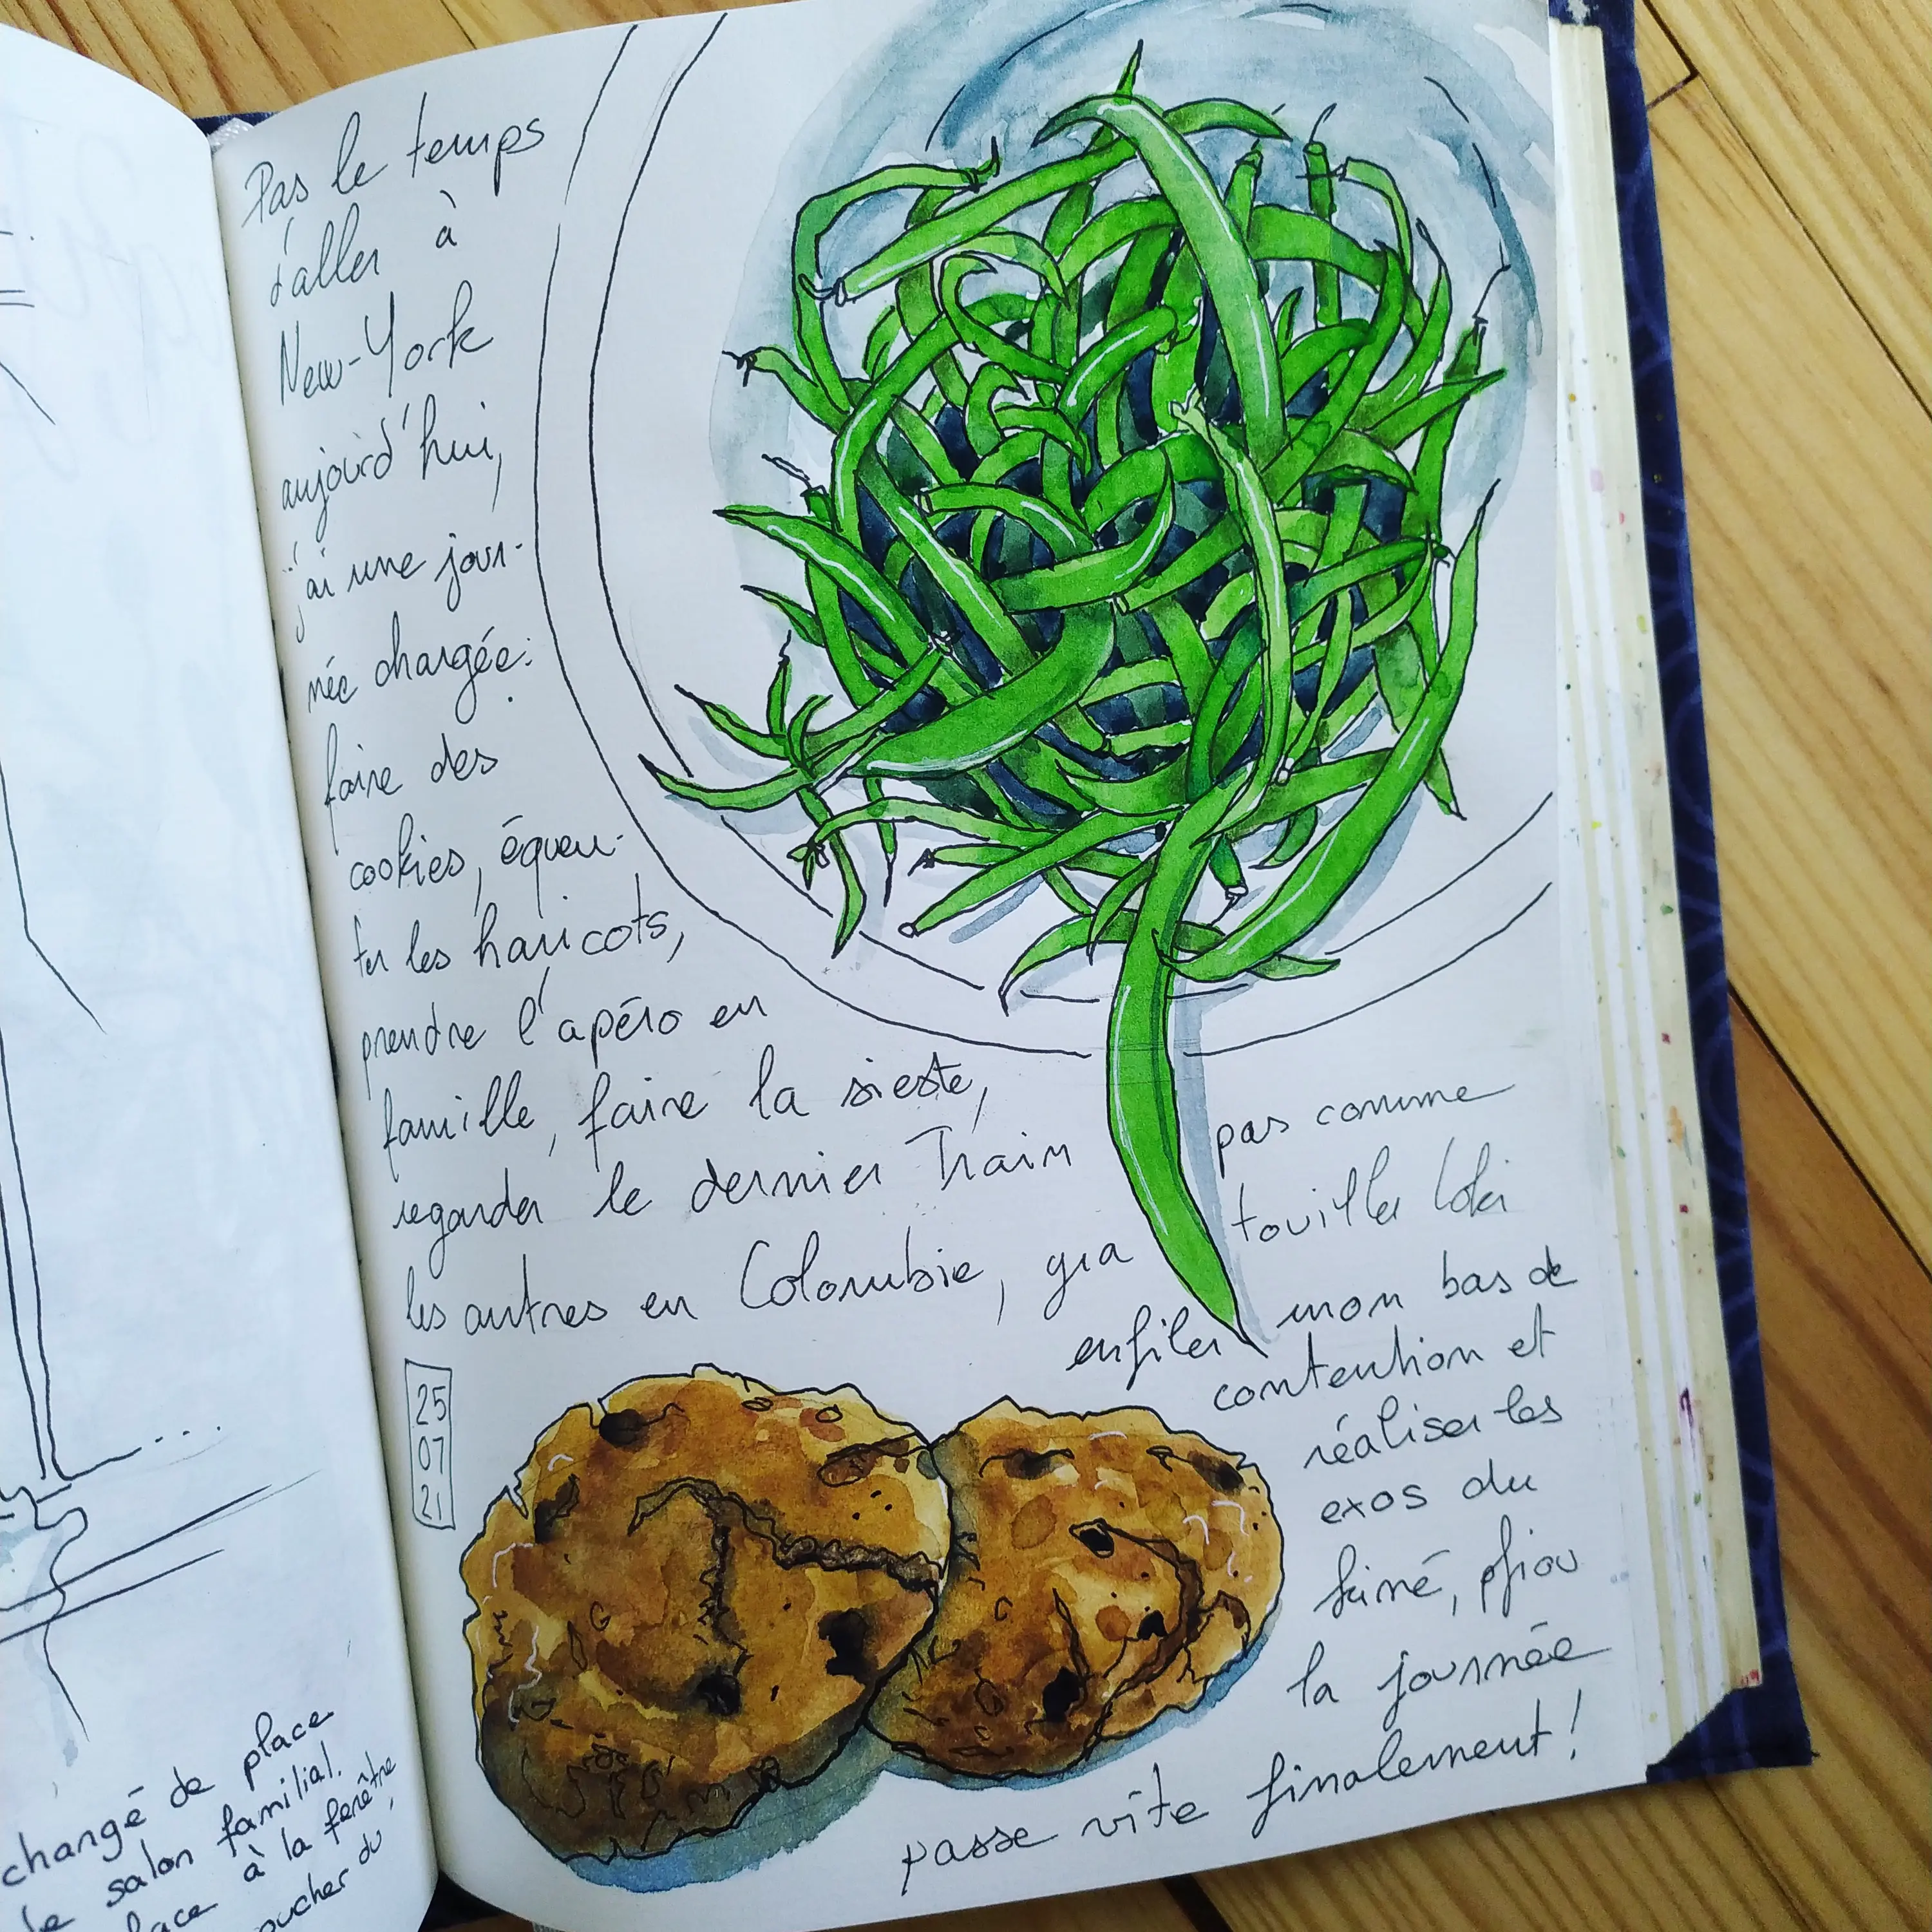 changé de place
le salon familial.
lace à la fenêtre
oucher du
Pas le temps
d'aller à
New-York
aujourd'hui,
j'ai une jour-
née chargée:
faire des
cookies, équeu-
ter les haricots,
prendre l'apéro en
famille, faire la sieste,
regarder le dernier Train pas comme
les autres en Colombie, gra touiller Loki
enfiler mon bas de
contention et
réaliser les
exos du
kiné, pfiou
la journée
passe vite finalement!
25
07
21